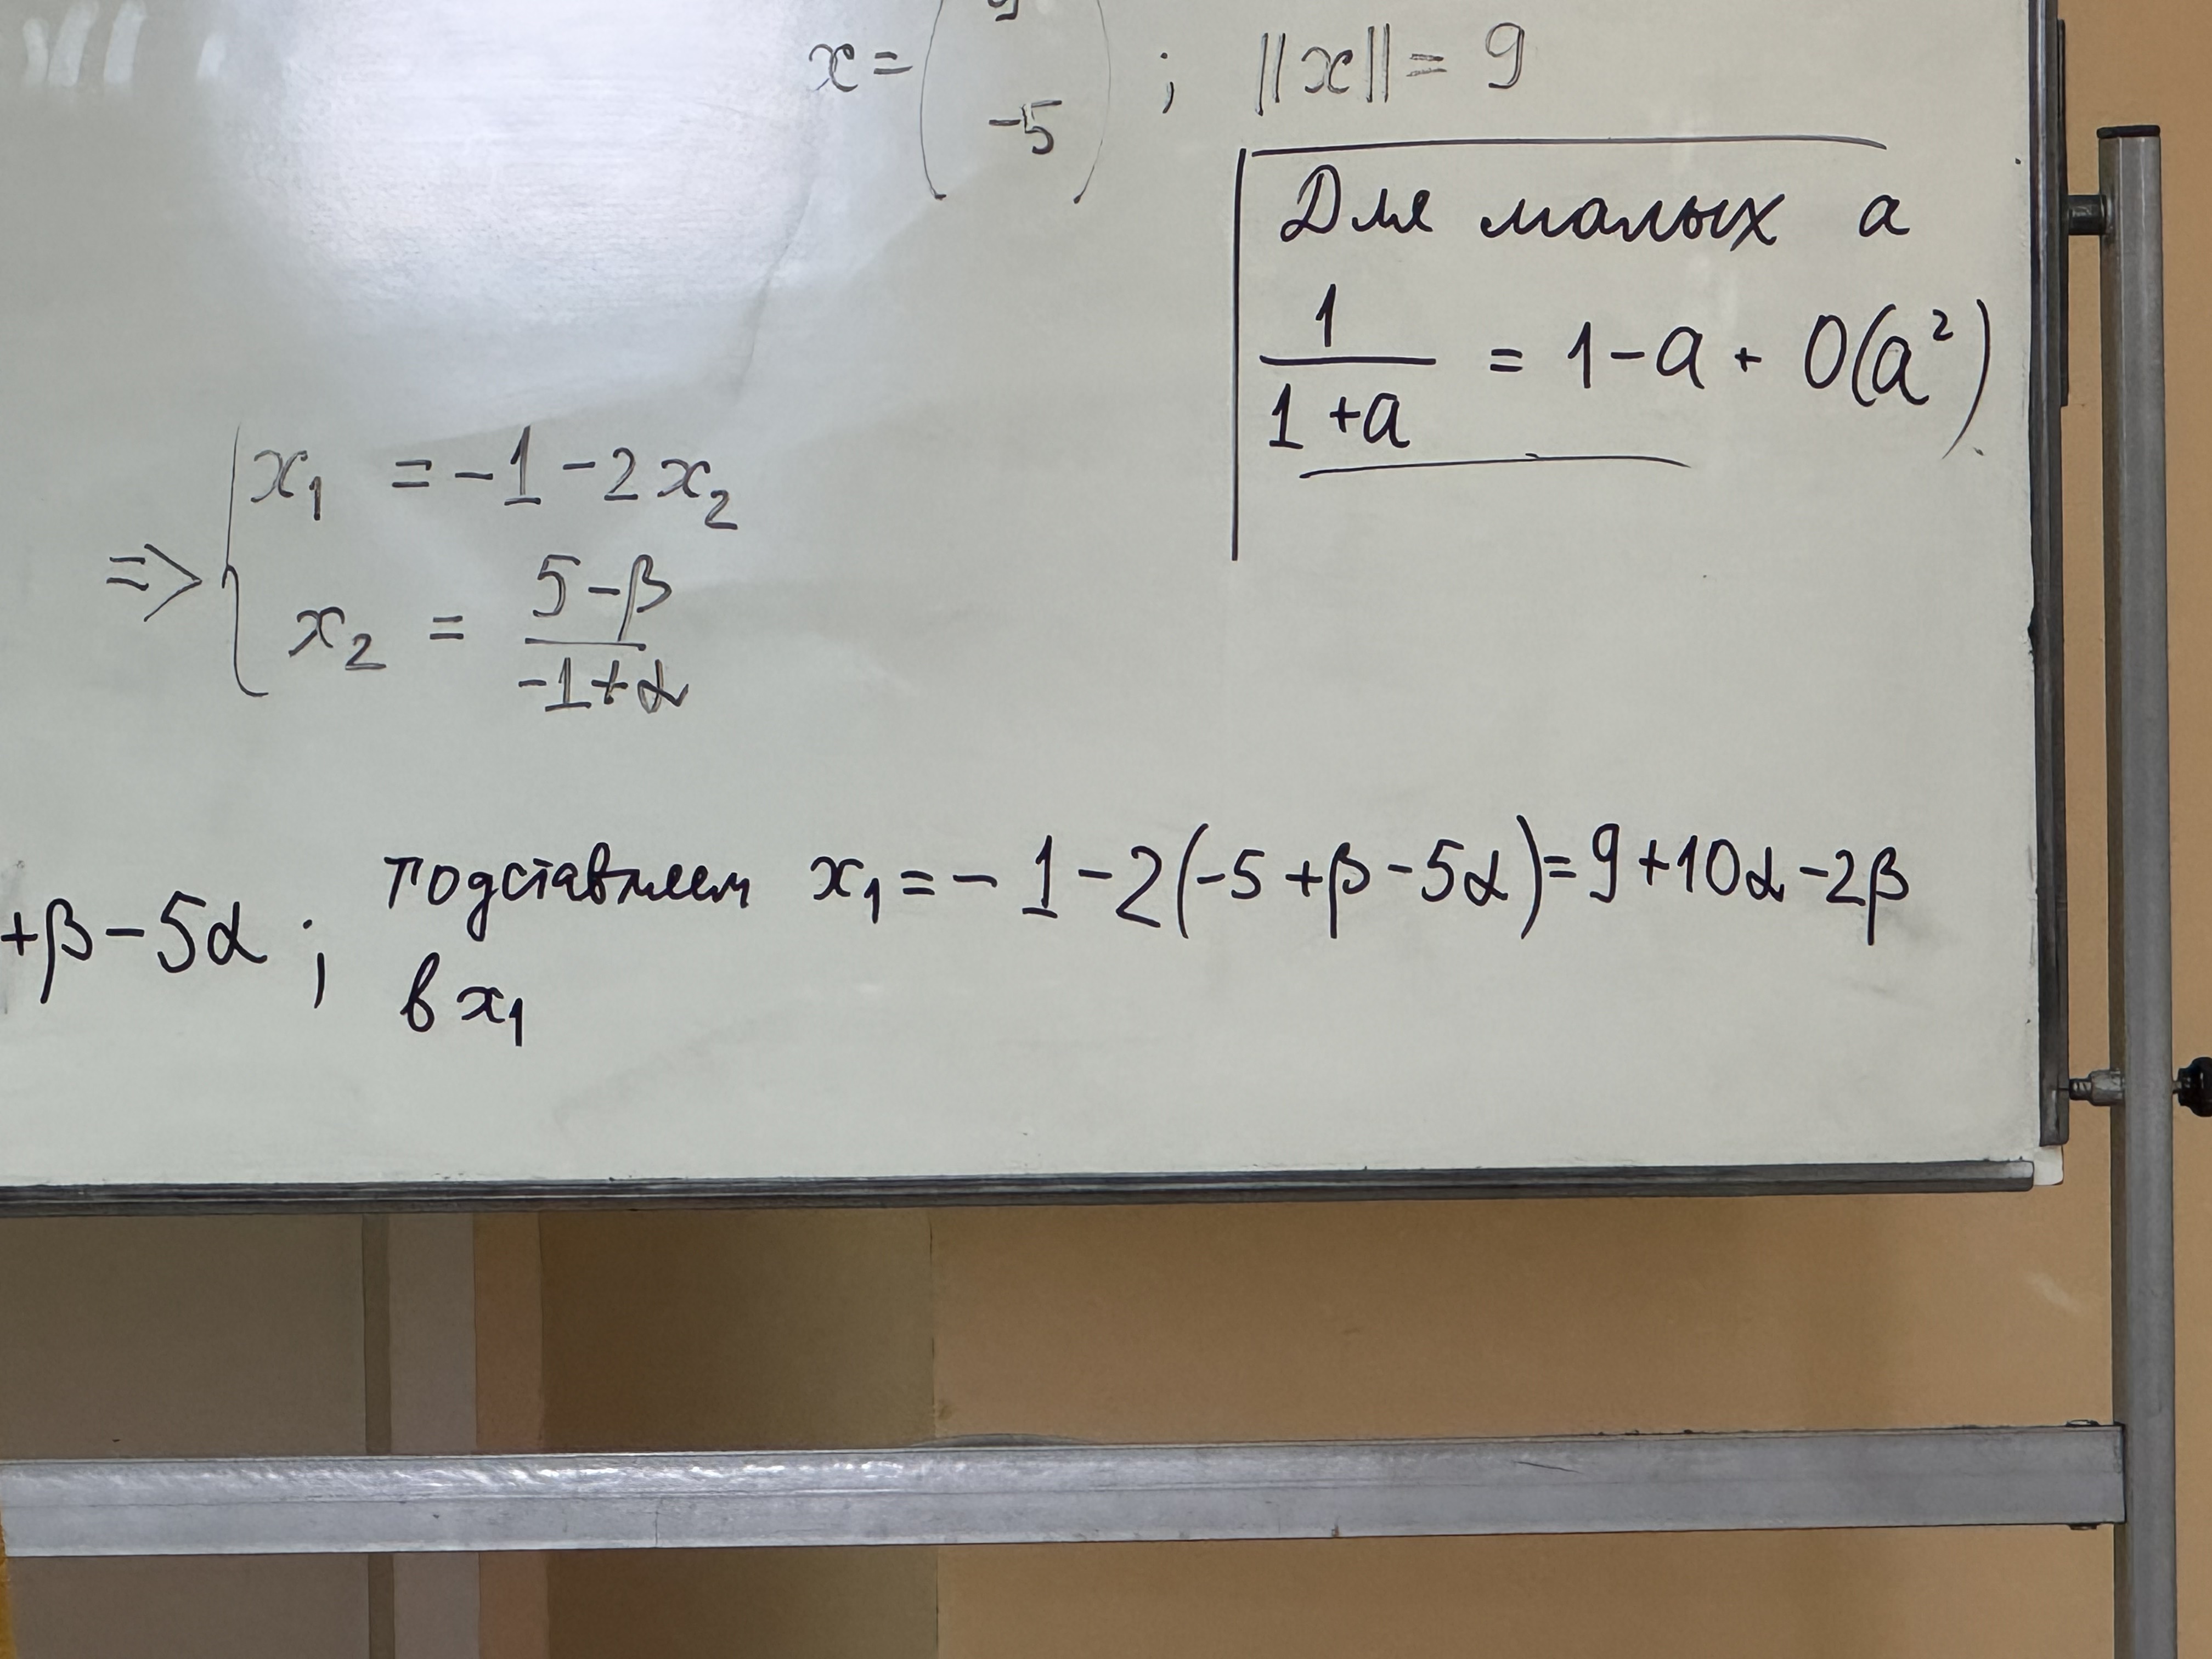 x = ( 9 -5 ) ; ||x|| = 9
Для малых a
1/(1+a) = 1 - a + O(a²).
=> { x₁ = -1 - 2x₂
x₂ = (5-β)/(-1+α)
+β - 5α ; подставляем x₁ = -1 - 2(-5+β-5α) = 9+10α-2β
в x₁